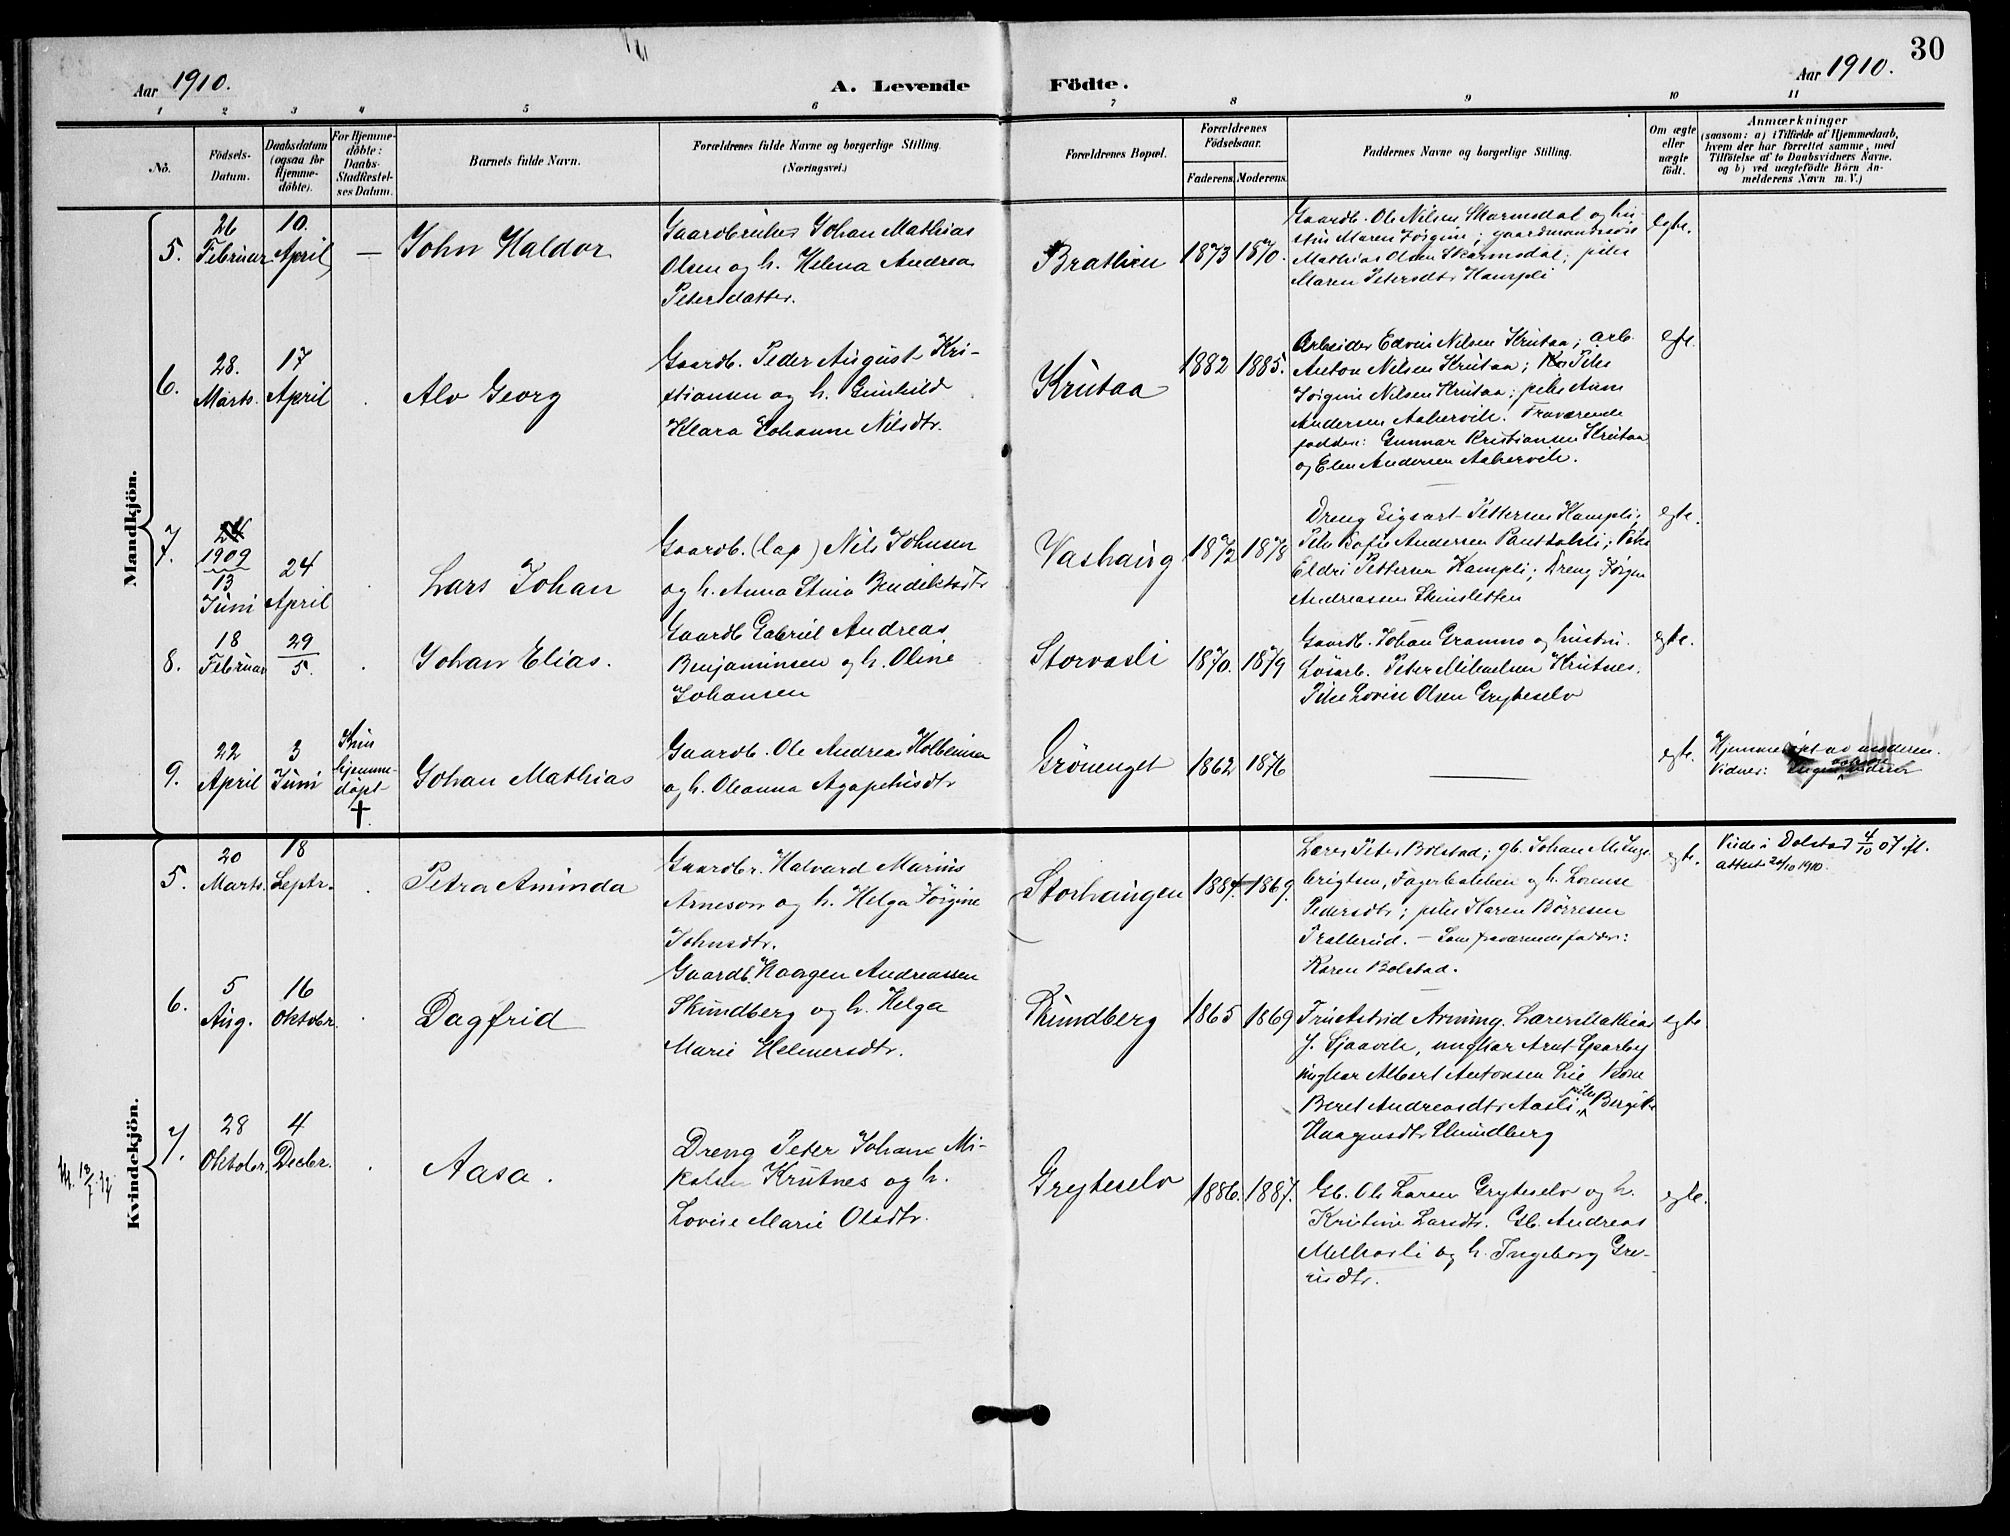 30
Aar 1910.
A. Levende
Födte.
Aar 1910.
1 2 3 4 5 6 7 8 9 10 11
No.
Födsels-
Datum.
Daabsdatum
(ogsaa for
Hjemme-
döbte).
For Hjemme-
döbte:
Daabs-
Stadfæstel-
ses Datum.
Barnets fulde Navn.
Forældrenes fulde Navne og borgerlige Stilling.
(Næringsvei.)
Forældrenes Bopæl.
Forældrenes
Födselsaar.
Faderens. Moderens.
Faddernes Navne og borgerlige Stilling.
Om ægte
eller
uægte
födt.
Anmærkninger
(saasom: a) i Tilfælde af Hjemmedaab,
hvem der har forrettet samme, med
Tilföielse af to Daabsvidners Navne.
og b) ved uægtefödte Börn An-
melderens Navn m. V.)
Mandkjön.
5.
26
Februar
10.
April
—
John Haldor
Gaardbruker Johan Mathias
Olsen og h. Helena Andrea
Petersdatter.
Bratlien
1873
1870.
Gaardb. Ole Nilsen Skarmodal og hu-
stru Maren Jörgine; gaardmandssön
Mathias Olsen Skarmodal; pike
Maren Petersdtr Hampli
egte.
6.
28.
Marts.
17
April
.
Alv Georg
Gaardb. Peder August Kri-
stiansen og h. Gunhild
Klara Johanne Nilsdtr.
Krutaa
1882
1885.
Arbeider Edvin Nilsen Krutaa; arb.
Anton Nilsen Krutaa; Pike
Jörgine Nilsen Krutaa; pike Anne
Andersen Aakervik. Fraværende
fadder: Gunnar Kristiansen Krutaa
og Elen Andersen Aakervik.
egte.
7.
24
1909
13
Juni
24
April
.
Lars Johan
Gaardb. (lap) Nils Johnsen
og h. Anna Stina Bendiktsdtr
Vashaug
1872
1878
Dreng Sigvart Pettersen Hampli;
Pike Sofie Andersen ; Pike
Eldri Pettersen Hampli; Dreng Jörgen
Andreassen Stensletten
egte.
8.
18
Februar
29
5.
.
Johan Elias.
Gaardb Gabriel Andreas
Benjaminsen og h. Oline
Johansen
Storvasli
1870.
1879
Gaardb. Johan Gramno og hustru.
Lösarb. Peter Mikalsen Krutnes.
Pike Lovise Olsen Gryteselv
egte.
9.
22
April
3
Juni
Kun
hjemme-
döpt
†.
Johan Mathias
Gaardb. Ole Andreas Kolbeinsen
og h. Oleanna Agapetusdtr
Grönenget
1862
1876
—
egte.
Hjemmedöpt av moderen.
Vidner:
Kvindekjön.
5.
20
Marts.
18
Septr.
.
Petra Aminda
Gaardbr. Halvard Marius
Arneson og h. Helga Jörgine
Johnsdtr.
Storhaugen
1884.
1869.
Lærer Peter Bolstad; gb. Johan M. Inge-
brigtsen, Fagerbakken og h. Lorense
Pedersdtr; pike Karen Börresen
Trallerud. — Som fraværende fadder:
Karen Bolstad.
egte.
Viede i Dolstad 4/10 07 ifl.
attest 20/10 1910.
6.
5
Aug.
16
Oktobr.
.
Dagfrid
Gaardb. Haagen Andreassen
Skundberg og h. Helga
Marie Helmersdtr.
Skundberg
1865
1869
Fru Astrid Arning. Lærer Mathias
J. Sjaavik, ungkar Arnt Sparby
ungkar Albert Antonsen Lie kone
Beret Andreasdtr Aasli, pike Bergit
Haagensdtr Skundberg
egte
Kf. 18/7 32
7.
28
Oktobr.
4
Decbr.
.
Aasa.
Dreng Peter Johan Mi-
kalsen Krutnes og h.
Lovise Marie Olsdtr.
Gryteselv
1886.
1887.
Gb. Ole Larsen Gryteselv og h.
Kristine Larsdtr. Gb. Andreas
Melkasli og h. Ingeborg Gre-
risdtr.
egte.